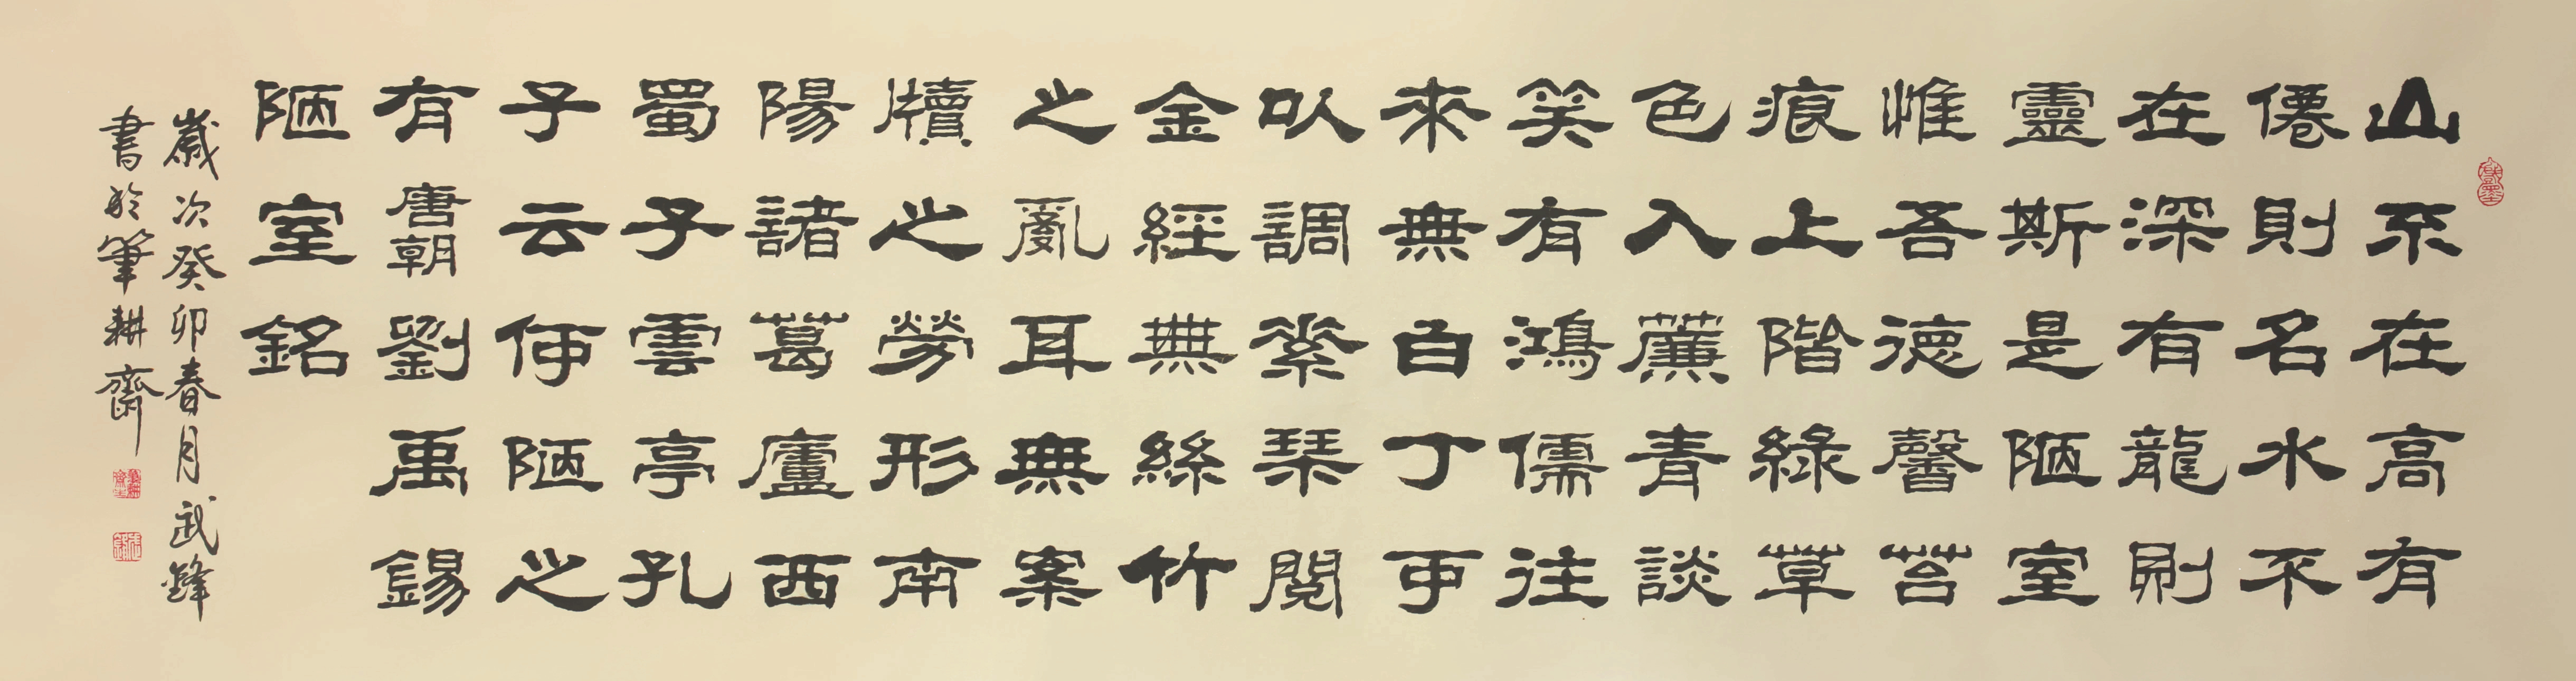 山不在高有
僊則名水不
在深有龍則
靈斯是陋室
惟吾德馨苔
痕上階綠草
色入簾青談
笑有鴻儒往
來無白丁可
以調素琴閱
金經無絲竹
之亂耳無案
牘之勞形南
陽諸葛廬西
蜀子雲亭孔
子云何陋之
有唐朝劉禹錫
陋室銘
歲次癸卯春月武鋒
書於筆耕齋